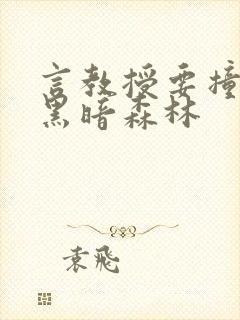 言教授要撞
黑暗森林
袁飛